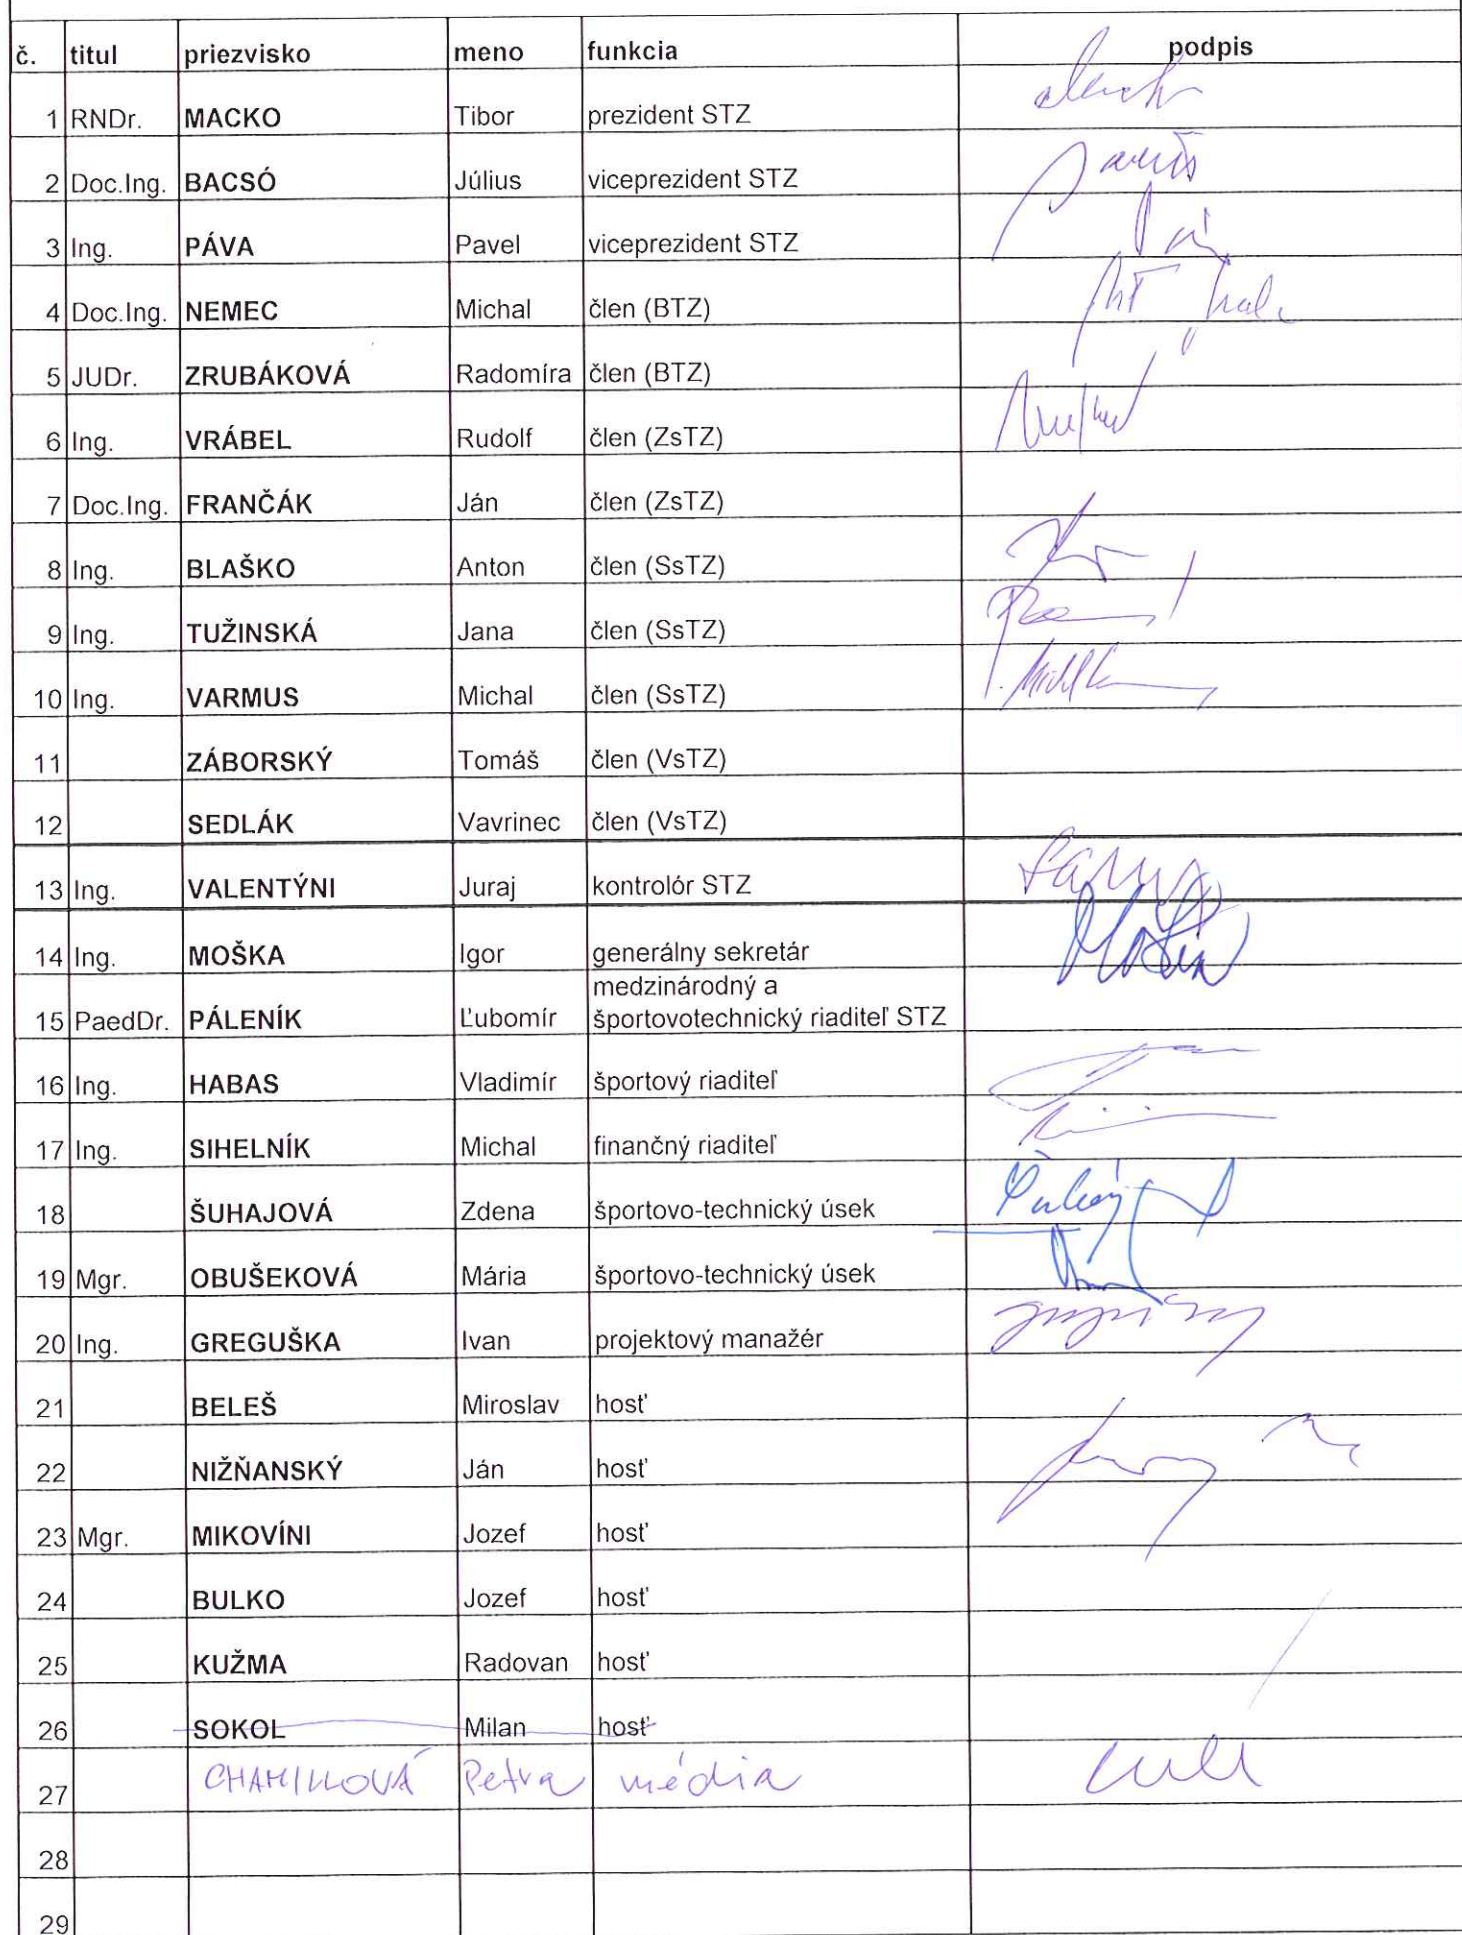 č. titul priezvisko meno funkcia podpis
1 RNDr. MACKO Tibor prezident STZ
2 Doc.Ing. BACSÓ Július viceprezident STZ
3 Ing. PÁVA Pavel viceprezident STZ
4 Doc.Ing. NEMEC Michal člen (BTZ)
5 JUDr. ZRUBÁKOVÁ Radomíra člen (BTZ)
6 Ing. VRÁBEL Rudolf člen (ZsTZ)
7 Doc.Ing. FRANČÁK Ján člen (ZsTZ)
8 Ing. BLAŠKO Anton člen (SsTZ)
9 Ing. TUŽINSKÁ Jana člen (SsTZ)
10 Ing. VARMUS Michal člen (SsTZ)
11 ZÁBORSKÝ Tomáš člen (VsTZ)
12 SEDLÁK Vavrinec člen (VsTZ)
13 Ing. VALENTÝNI Juraj kontrolór STZ
14 Ing. MOŠKA Igor generálny sekretár
medzinárodný a
15 PaedDr. PÁLENÍK Ľubomír športovotechnický riaditeľ STZ
16 Ing. HABAS Vladimír športový riaditeľ
17 Ing. SIHELNÍK Michal finančný riaditeľ
18 ŠUHAJOVÁ Zdena športovo-technický úsek
19 Mgr. OBUŠEKOVÁ Mária športovo-technický úsek
20 Ing. GREGUŠKA Ivan projektový manažér
21 BELEŠ Miroslav hosť
22 NIŽŇANSKÝ Ján hosť
23 Mgr. MIKOVÍNI Jozef hosť
24 BULKO Jozef hosť
25 KUŽMA Radovan hosť
26 SOKOL Milan hosť
27 Petra média
28
29